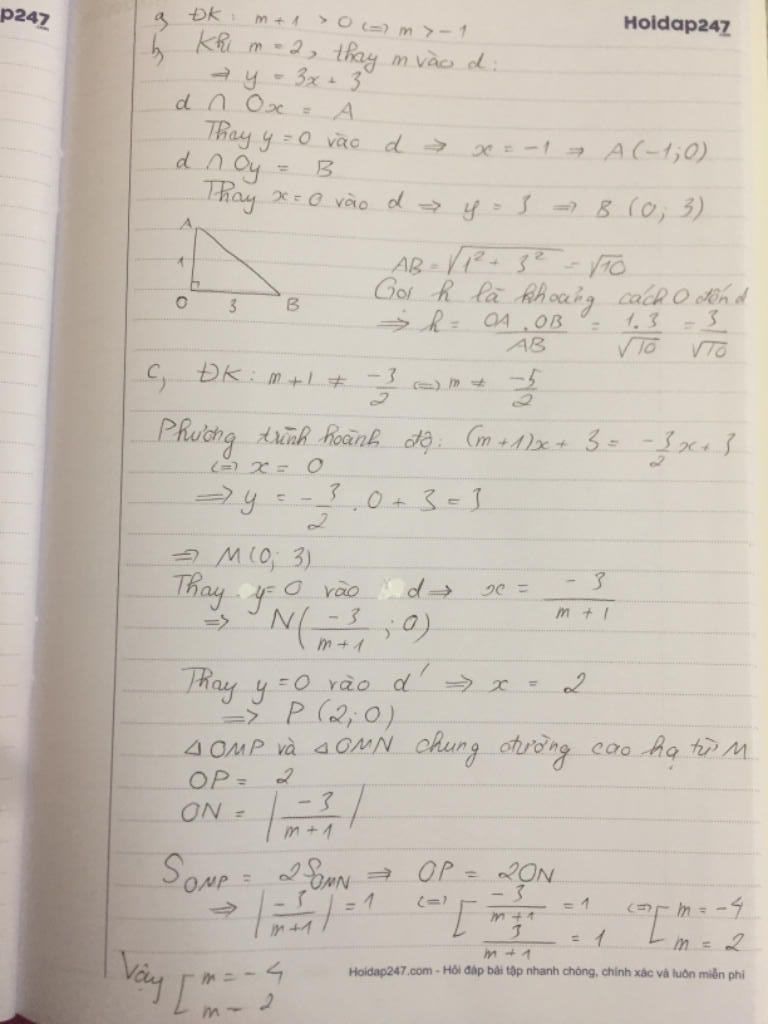 p247.com
Hoidap247.com
a, ĐK: m+1 > 0 (=) m > -1
b, Khi m = 2, thay m vào d:
⇒ y = 3x + 3
d ∩ Ox = A
Thay y = 0 vào d ⇒ x = -1 ⇒ A(-1;0)
d ∩ Oy = B
Thay x = 0 vào d ⇒ y = 3 ⇒ B (0; 3)
A
1
O 3 B
AB = √(1² + 3²) = √10
Gọi h là khoảng cách O đến d
⇒ h = OA . OB / AB = 1.3 / √10 = 3 / √10
c, ĐK: m+1 ≠ -3/2 (=) m ≠ -5/2
Phương trình hoành độ: (m+1)x + 3 = -3/2 x + 3
(=) x = 0
⇒ y = -3/2 . 0 + 3 = 3
⇒ M(0; 3)
Thay y = 0 vào d ⇒ x = -3 / m+1
⇒ N(-3 / m+1 ; 0)
Thay y = 0 vào d' ⇒ x = 2
⇒ P (2; 0)
△OMP và △OMN chung đường cao hạ từ M
OP = 2
ON = |-3 / m+1|
S OMP = 2S OMN ⇒ OP = 2ON
⇒ |-3 / m+1| = 1 (=) [ -3 / m+1 = 1 (=) [ m = -4
3 / m+1 = 1 m = 2
Vậy [ m = -4
m = 2
Hoidap247.com - Hỏi đáp bài tập nhanh chóng, chính xác và luôn miễn phí